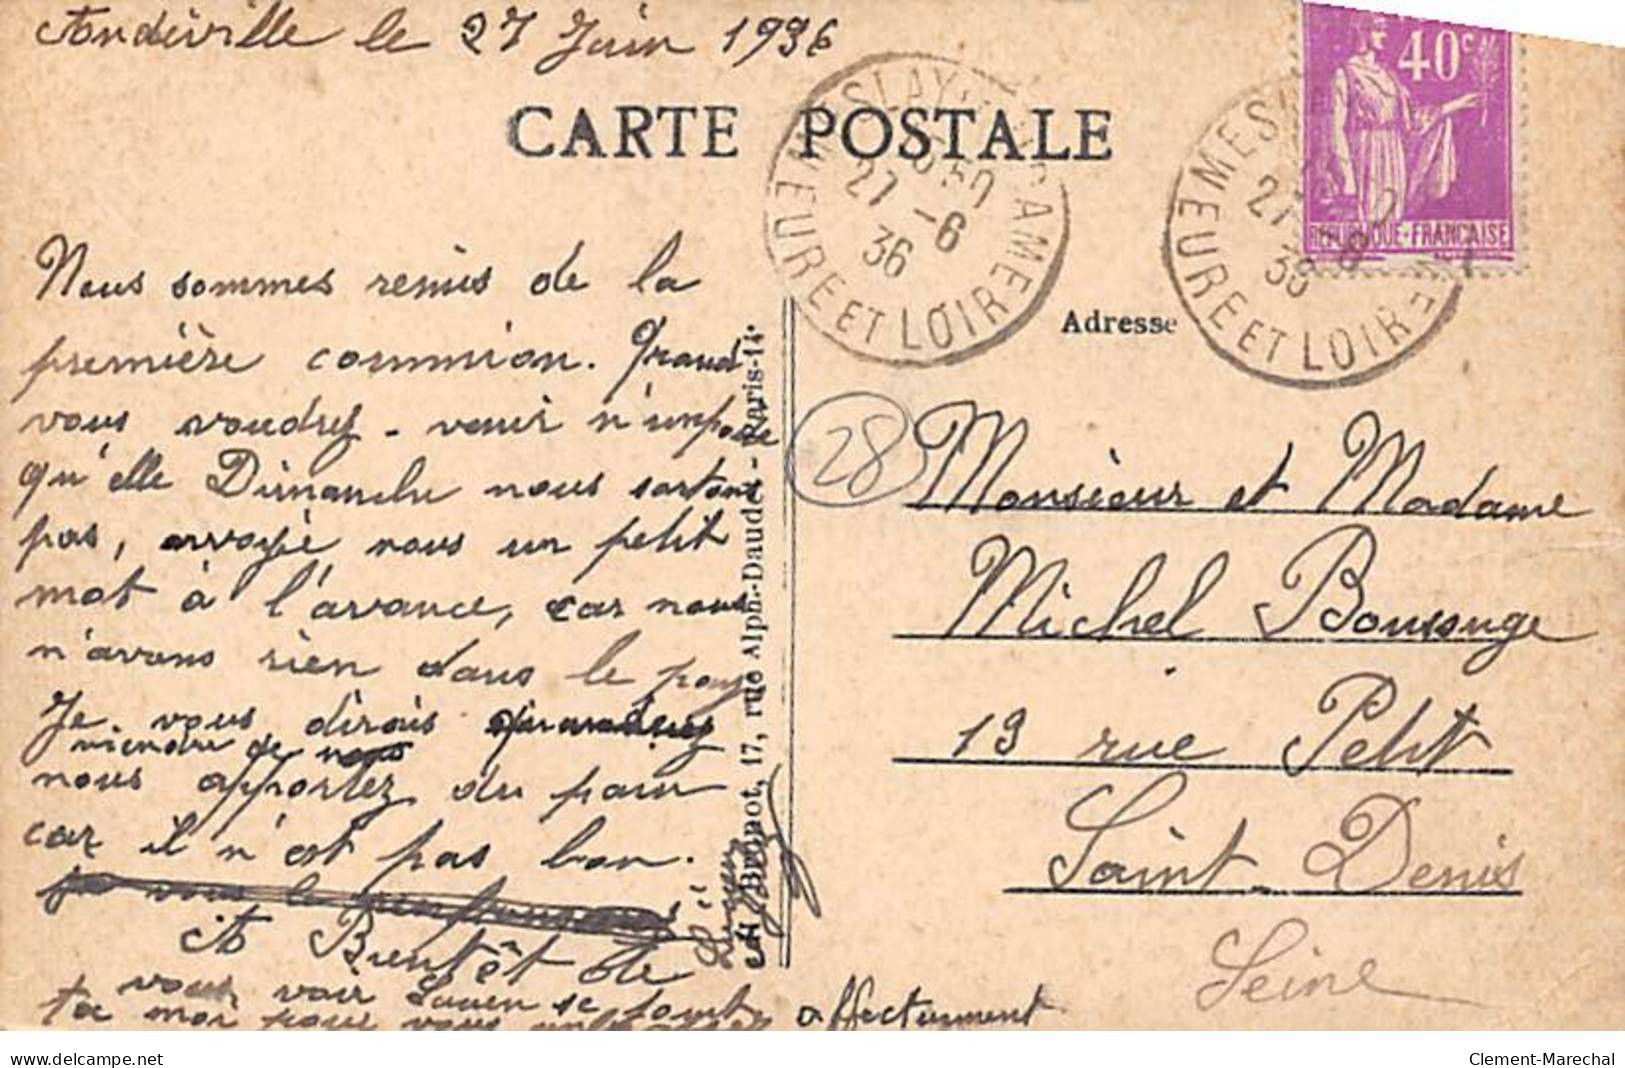 Andeville le 27 Juin 1936
CARTE POSTALE
MESLAY
27 -6
36
EURE ET LOIR
40c
REPUBLIQUE-FRANÇAISE
MES
27
36
EURE ET LOIR
Nous sommes remis de la
première commnion. Quand
vous voudrez venir n'importe
qu'elle Dimanche nous sortons
pas, envoyé nous un petit
mot à l'avance, car nous
n'avons rien dans le pays
Je vous dirais
viendre de
nous apportez du pain
car il n'est pas bon.
A Bientôt de
vous voir Lucien se joint
ta moi pour vous
affectument
rue Alph.-Daudet - Paris-14e
17,
Adresse
28
Monsieur et Madame
Michel Boursouge
13 rue Petit
Saint Denis
Seine
delcampe.net
Clement-Marechal